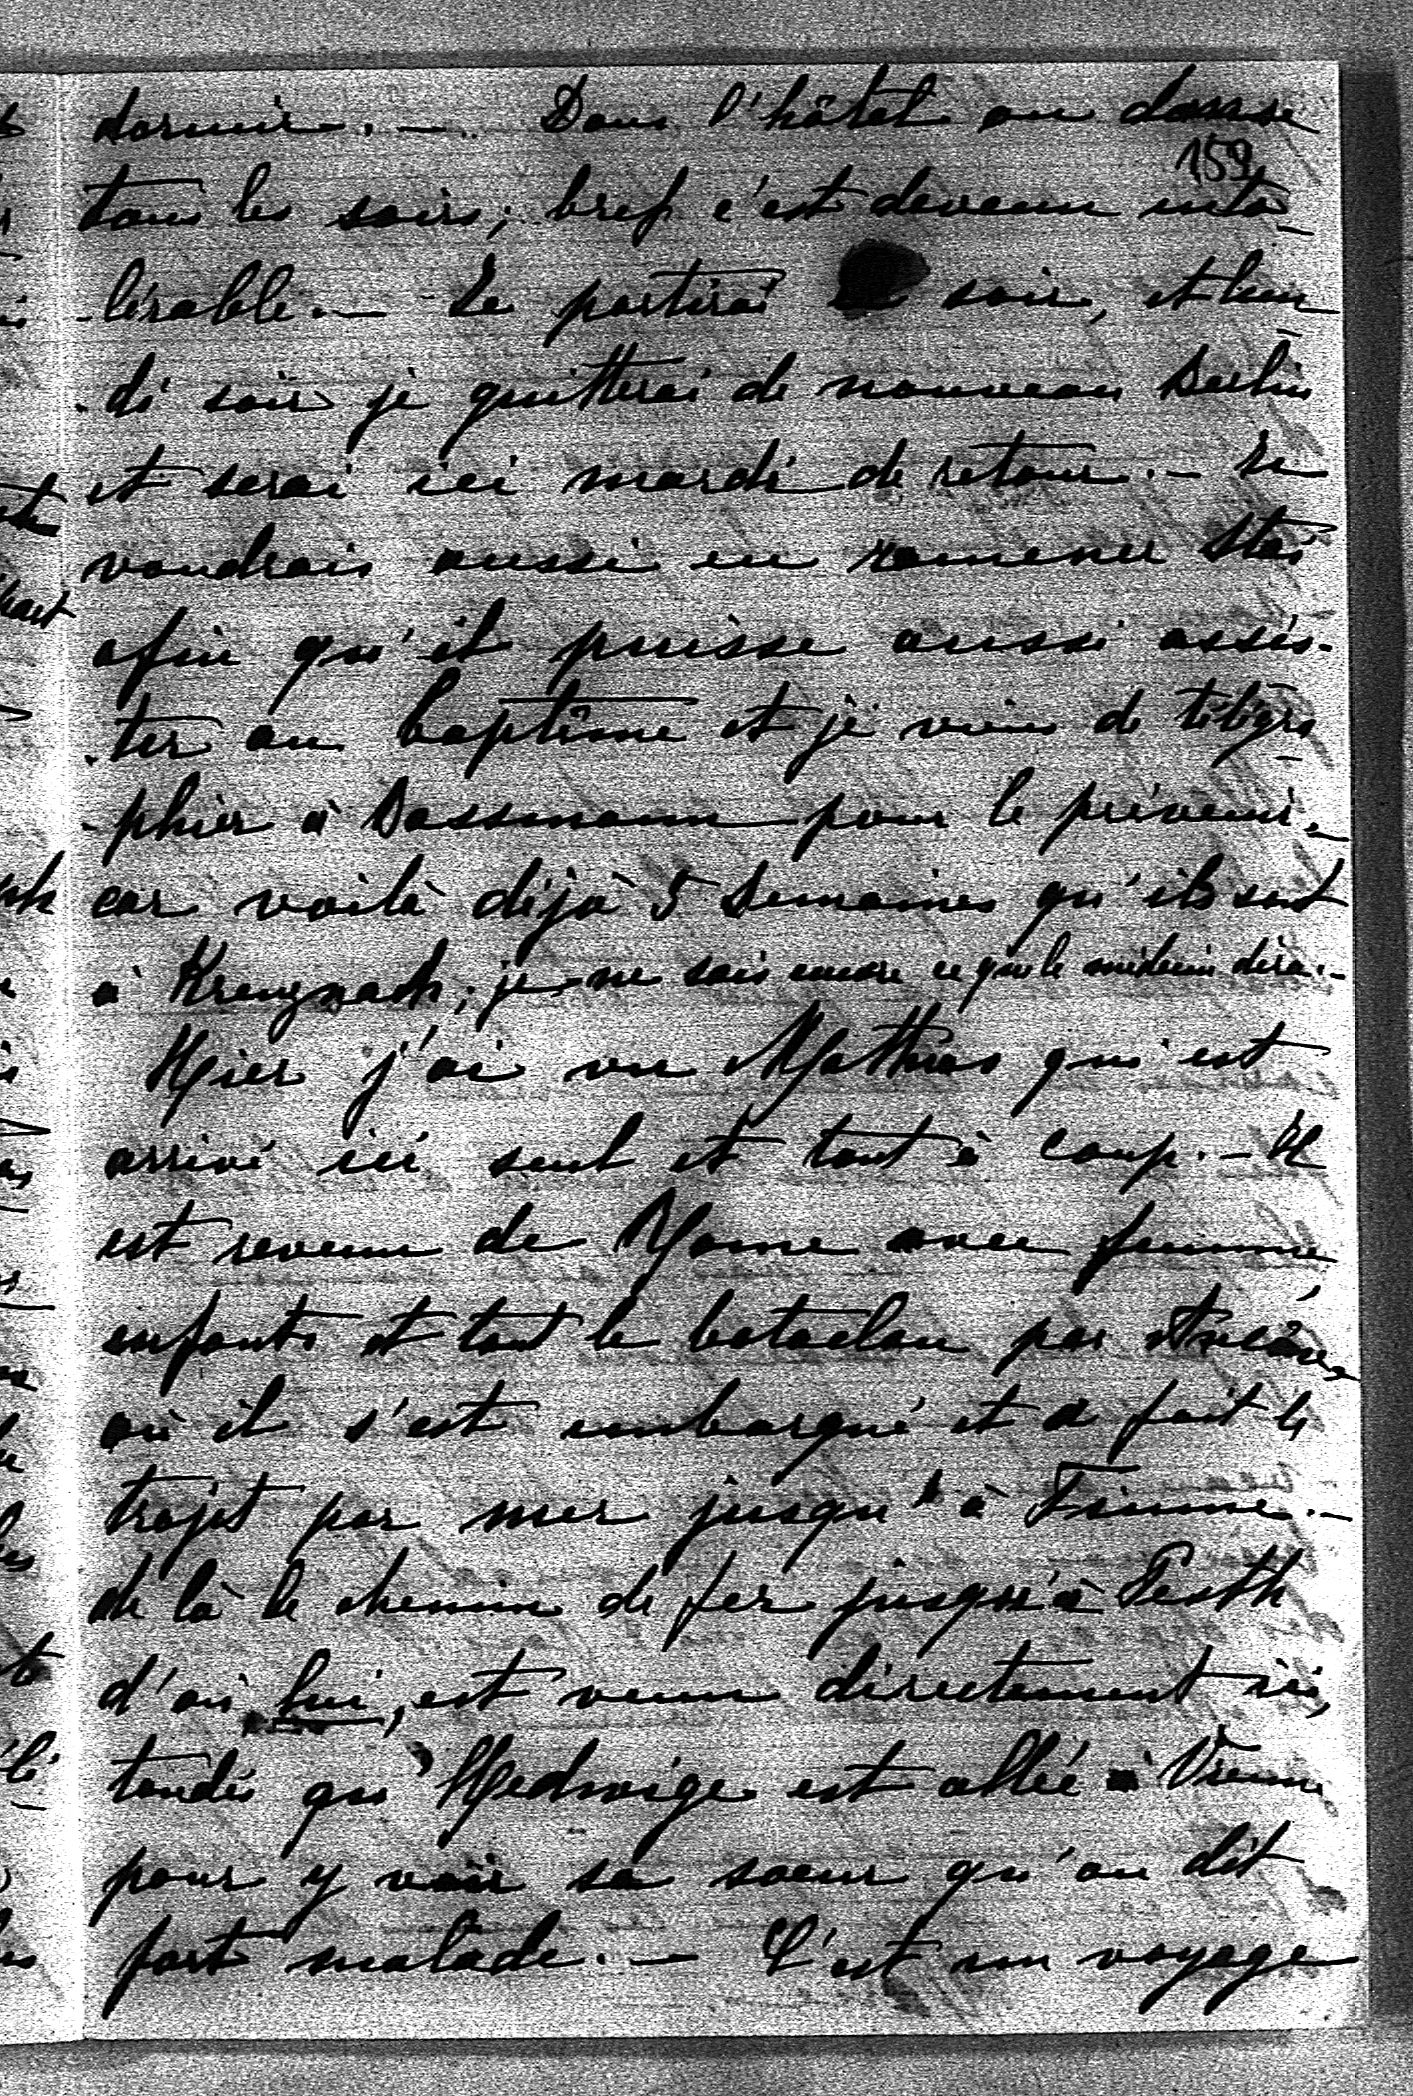 dormir. — Dans l'hôtel on danse
159
tous les soirs; bref c'est devenu into-
-lérable. — Je partirai ce soir, et lun-
-di soir je quitterai de nouveau Berlin
et serai ici mardi de retour. — Je
voudrais aussi en ramener Stas
afin qu'il puisse aussi assis-
-ter au baptême et je viens de télégra-
-phier à Dassmann pour le prévenir. —
car voilà déjà 5 semaines qu'ils sont
à Kreuznach; je ne sais encore ce que le médecin dira. —
Hier j'ai vu Mathias qui est
arrivé ici seul et tout à coup. — Il
est revenu de Rome avec femme,
enfants et tout le bataclan par Ancône,
où il s'est embarqué et a fait le
trajet par mer jusqu'à Fiume. —
de là le chemin de fer jusqu'à Pesth
d'où lui, est venu directement ici,
tandis que Hedwige est allé à Vienne
pour y voir sa soeur qu'on dit
fort malade. — C'est un voyage